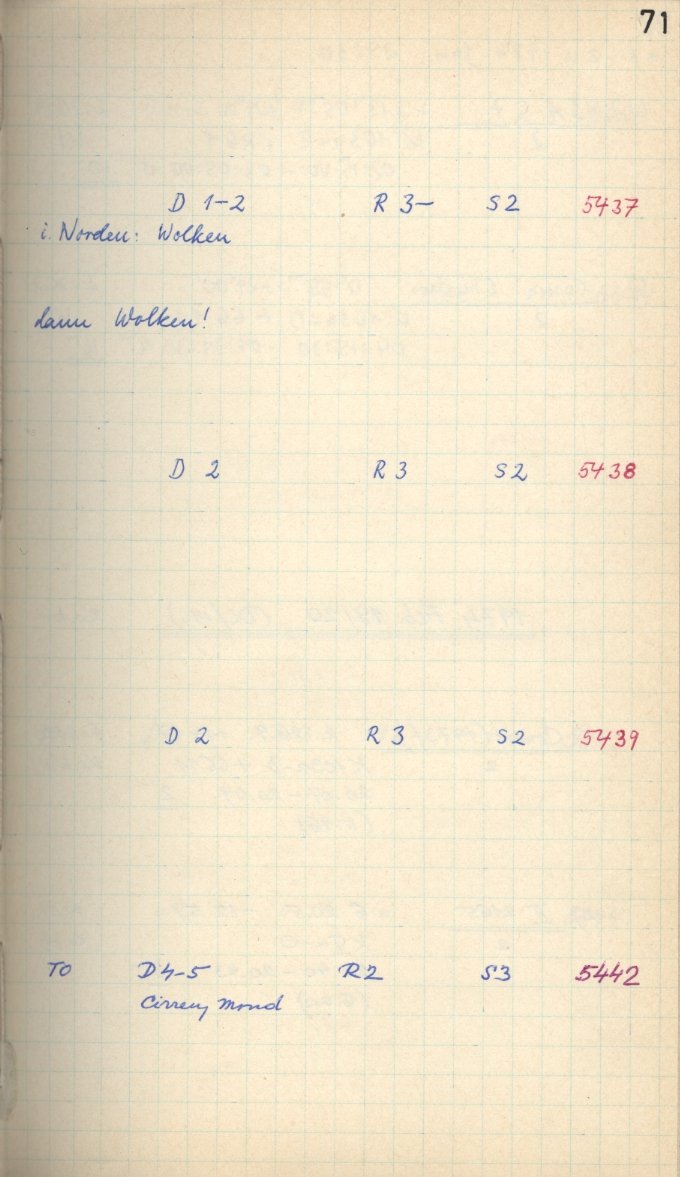 71
D 1-2 R 3- S2 5437
i. Norden: Wolken
dann Wolken!
D 2 R 3 S2 5438
D 2 R 3 S2 5439
TO D4-5 R2 S3 5442
Cirren, Mond